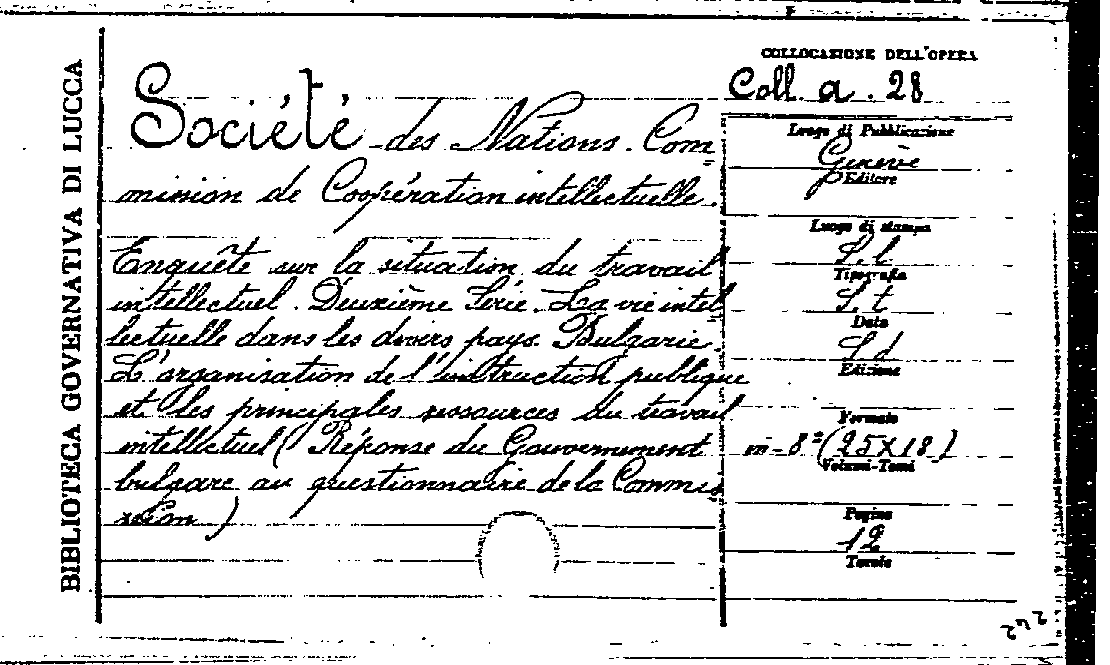 BIBLIOTECA GOVERNATIVA DI LUCCA
COLLOCAZIONE DELL'OPERA
Coll. a. 28
Société des Nations. Com=
mission de Coopération intellectuelle.
Enquête sur la situation du travail
intellectuel. Deuxième Série. La vie intel=
lectuelle dans les divers pays. Bulgarie.
L'organisation de l'instruction publique
et les principales ressources du travail
intellectuel (Réponse du Gouvernement
bulgare au questionnaire de la Commis=
sion)
Luogo di Pubblicazione
Genève
Editore
Luogo di stampa
S. l
Tipografia
S. t
Data
S d
Edizione
Formato
in-8º (25X18)
Volumi-Tomi
Pagine
12
Tavole